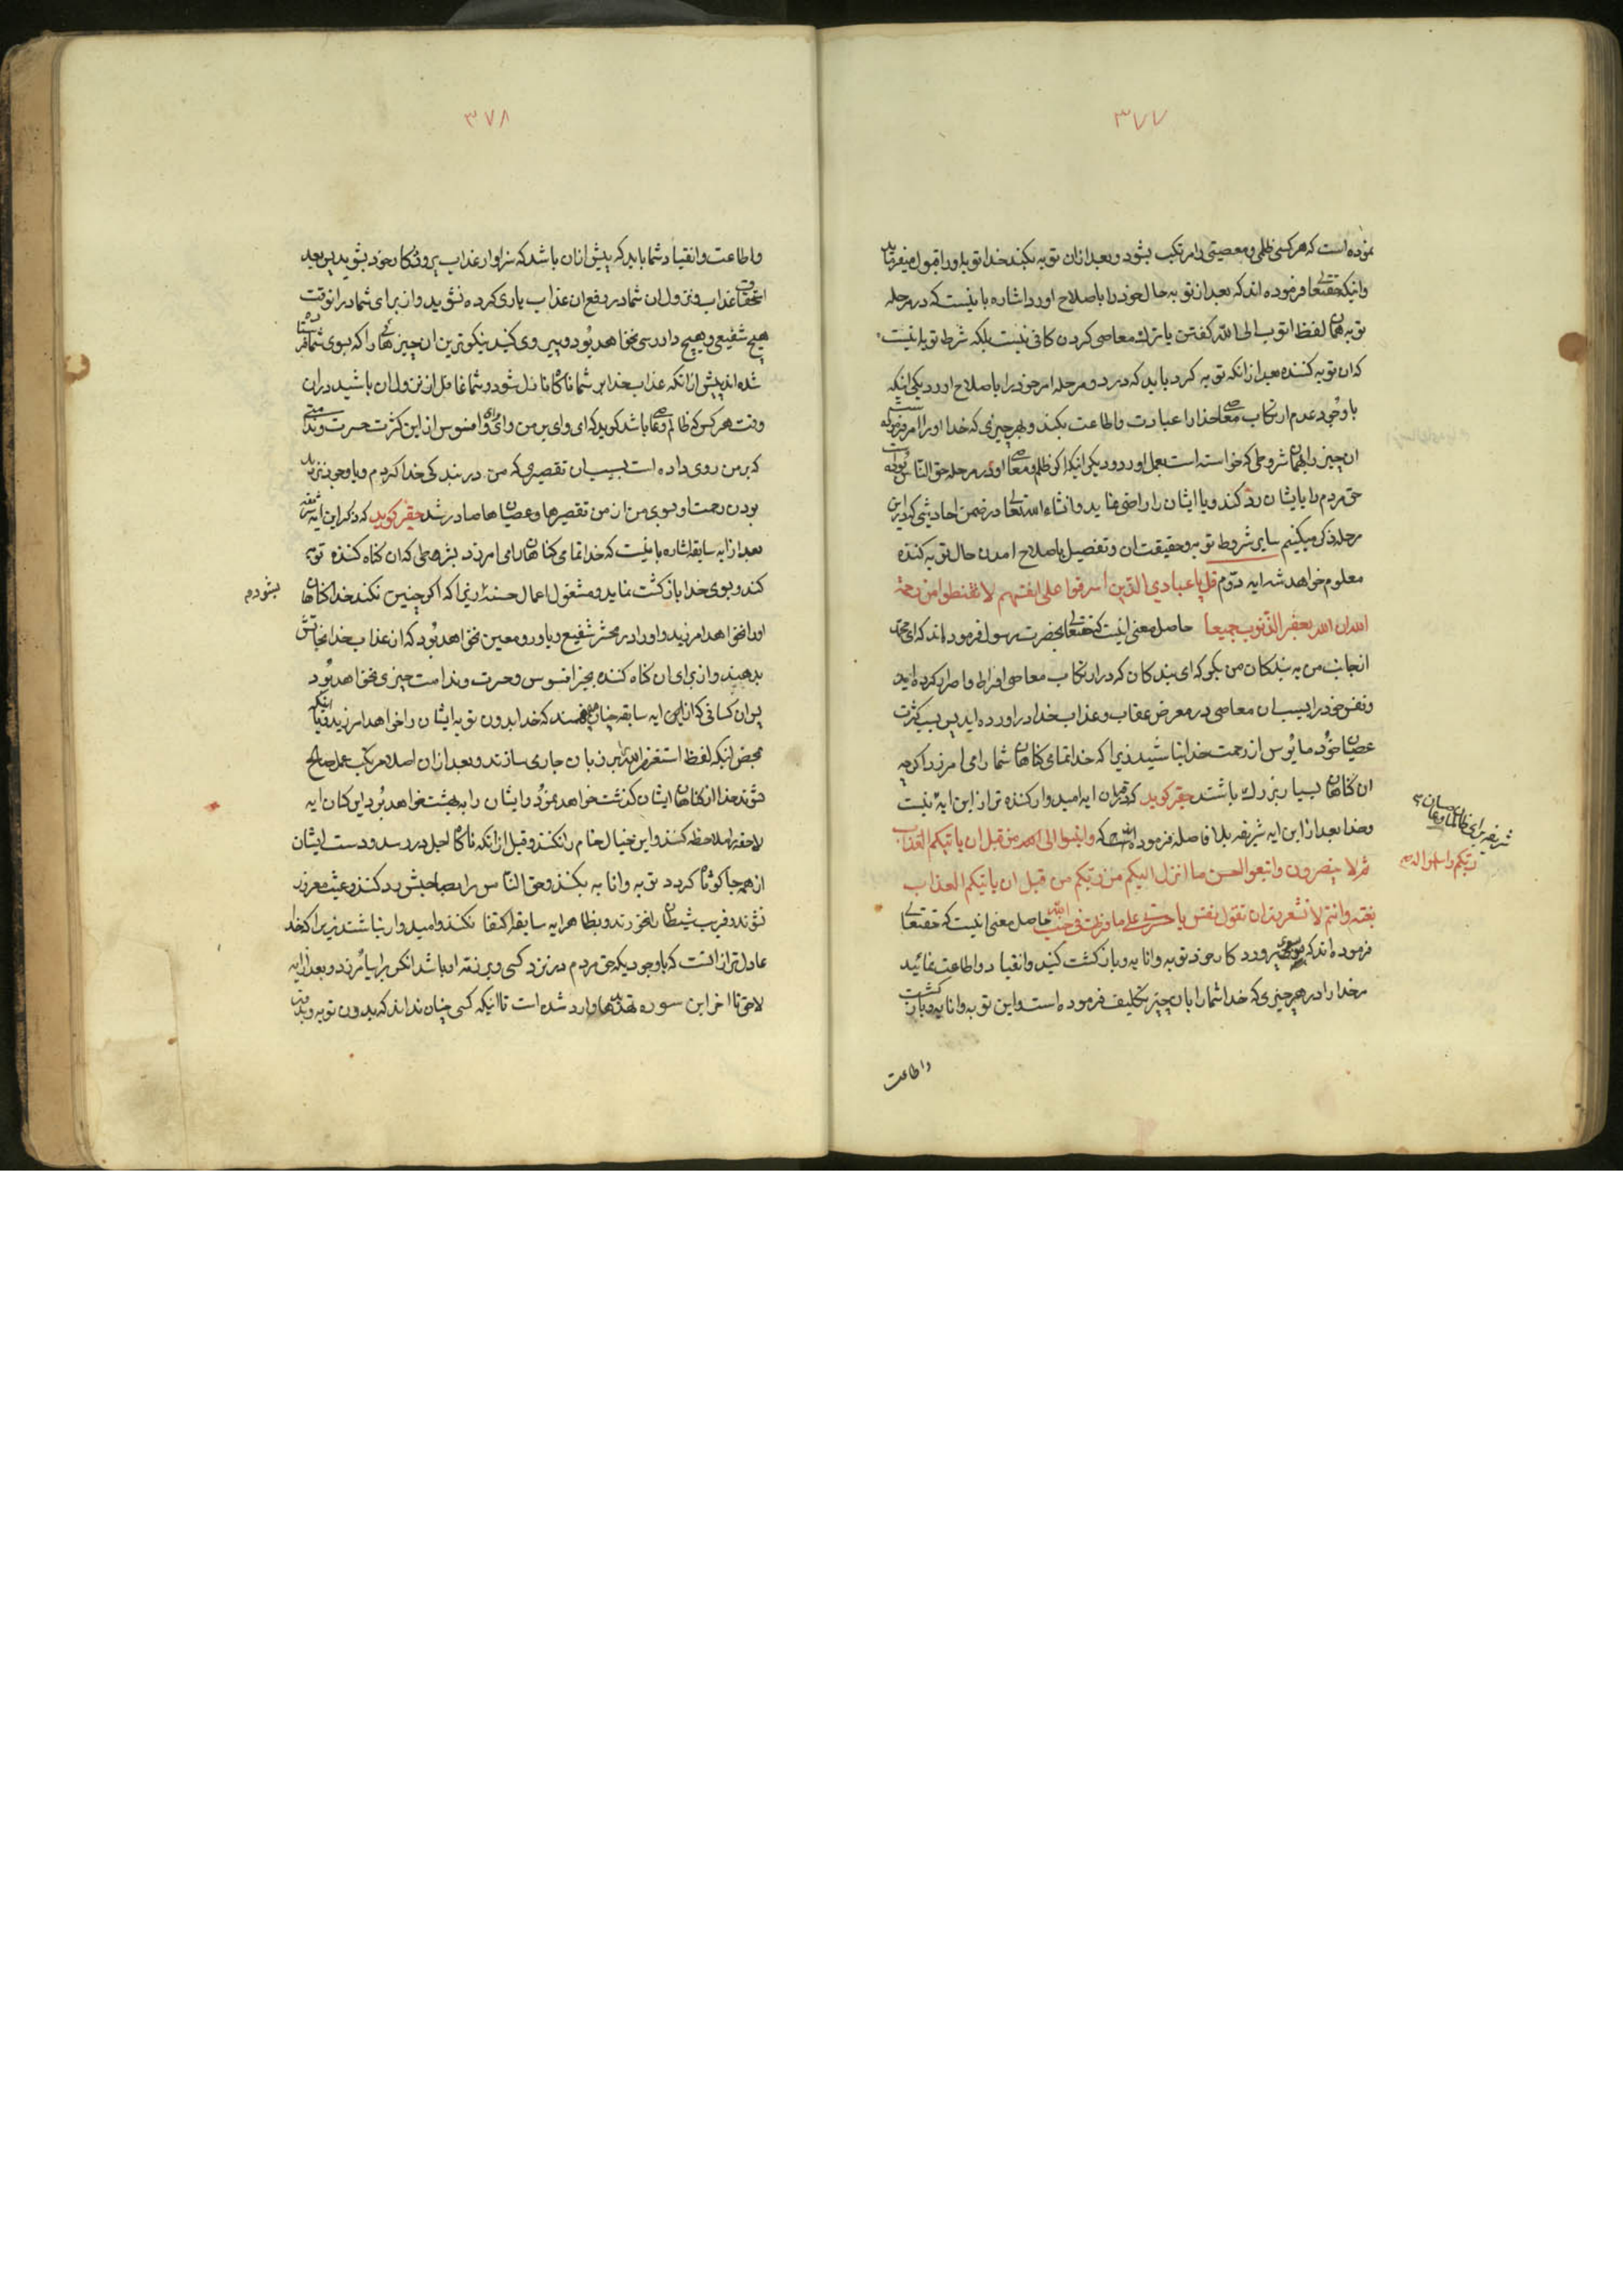 ۳۷۷
نموده است که هر کسی ظلمی و معصیتی را مرتکب بشود و بعد از ان توبه بکند خدا توبه اورا قبول میفرماید
و اینکه حقتعالی فرموده اند که بعد از توبه حال خود را باصلاح اورد اشاره باینست که در مرحله
توبه همان لفظ اتوب الی الله گفتن یا ترک معاصی کردن کافی نیست بلکه شرط توبه اینست
که ان توبه کننده بعد از انکه توبه کرد باید که در دو مرحله امر خود را باصلاح اورد یکی اینکه
با وجود عدم ارتکاب معاصی خدا را عبادت و اطاعت بکند و بهر چیزی که خدا اورا امر فرموده
ان چیز را بهمان شروطی که خواسته است بعمل اورد و دیگری اینکه اگر ظلم و معاصی او در مرحله حق الناس بوده
حق مردم را بایشان رد کند و یا ایشان را راضی نماید و انشاء الله تعالی در ضمن احادیثی که در این
مرحله ذکر میکنیم سایر شروط توبه و حقیقت ان و تفصیل باصلاح امدن حال توبه کننده
معلوم خواهد شد ایه دوم قل یا عبادي الذین اسرفوا علی انفسهم لا تقنطوا من رحمة
الله ان الله یغفر الذنوب جمیعا حاصل معنی اینست که حقتعالی بحضرت رسول فرموده اند که ای محمد
از جانب من به بندکان من بکو که ای بندکان که در ارتکاب معاصی افراط و اصرار کرده اید
و نفس خود را بسبب ان معاصی در معرض عقاب و عذاب خدا در اورده اید پس بسبب کثرت
عصیان خود مایوس از رحمت خدا نباشید زیرا که خدا تمامی کناهان شما را می امرزد اکرچه
ان کناهان بسیار بزرک باشند حقیر کوید که در قران ایه امیدوار کننده تر از این ایه نیست
و خدا بعد از این ایه شریفه بلا فاصله فرموده است که و انیبوا الی ربکم و اسلموا له من قبل ان یاتیکم العذاب
ثم لا تنصرون و اتبعوا احسن ما انزل الیکم من ربکم من قبل ان یاتیکم العذاب
بغتة و انتم لا تشعرون ان تقول نفس یا حسرتی علی ما فرطت فی جنب الله حاصل معنی اینست که حقتعالی
فرموده اند که بسوی پرورد کار خود توبه و انابه و باز کشت کنید و انقیاد و اطاعت نمائید
مر خدا را در هر چیزی که خدا شما را بان چیز تکلیف فرموده است و این توبه و انابه و باز کشت
واطاعت
۳۷۸
و اطاعت و انقیاد شما باید که پیش از ان باشد که سزاوار عذاب پرورد کار خود بشوید پس بعد
استحقاق عذاب و نزول ان شما در دفع ان عذاب یاری کرده نشوید و از برای شما در انوقت
هیچ شفیعی و هیچ دادرسی نخواهد بود و پیروی کنید نیکوترین ان چیز هائی را که بسوی شما فرستاده
شده اند پیش از انکه عذاب خدا بر شما ناکاه نازل شود و شما غافل از نزول ان باشید در ان
وقت هر کس که ظالم و عاصی باشد کوید که ای وای بر من وای و افسوس از این کثرت حسرت و ندامتی
که بر من روی داده است بسبب ان تقصیری که من در بندکی خدا کردم و با وجود نزدیک
بودن رحمت او بسوی من از من تقصیرها و عصیانها صادر شد حقیر کوید که ذکر این ایه شریفه
بعد از ایه سابقه اشاره باینست که خدا تمامی کناهان را می امرزد بشرطی که ان کناه کننده توبه
کند و بسوی خدا باز کشت نماید و مشغول اعمال حسنه بشود زیرا که اکر چنین نکند خدا کناهان
اورا نخواهد امرزید و اورا در محشر شفیع و یاور و معین نخواهد بود که از عذاب خدا نجاتش
بدهند و از برای ان کناه کننده بجز افسوس و حسرت و ندامت چیزی نخواهد بود
پس ان کسانی که از این ایه سابقه چنان میفهمند که خدا بدون توبه ایشان را خواهد امرزید و یا اینکه
بمحض اینکه لفظ استغفر الله را بر زبان جاری سازند و بعد از ان اصلا مرتکب عمل صالح
نشوند خدا از کناهان ایشان کذشت خواهد نمود و ایشان را به بهشت خواهد برد این کسان ایه
لاحقه را ملاحظه کنند و این خیال خام را نکنند و قبل از انکه ناکاه اجل در رسد و دست ایشان
از همه جا کوتاه کردد توبه و انابه بکنند و حق الناس را بصاحبش رد کنند و عبث مغرور
نشوند و فریب شیطان نخورند و بظاهر ایه سابقه اکتفا نکنند و امیدوار نباشند زیرا که خدا
عادل تر از انست که با وجودیکه حق مردم در نزد کسی و بر ذمه او باشد انکس را بیامرزد و بعد از ایه
لاحقه تا اخر این سوره تهدیدها وارد شده است تا اینکه کسی چنان نداند که بدون توبه و بدون